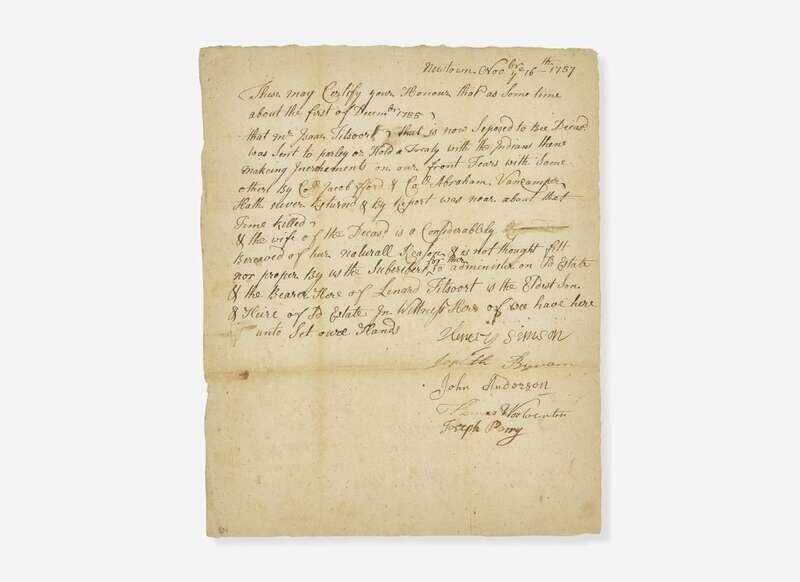 Newtown Novbre ye 16th 1757
These may Certify your Honour that as some time
about the first of Decembr 1755
that mr Isaac Titsoort that is now Soposed to Bee Decasd
was sent to parley or Hold a Treaty with the Indians then
makeing Incrohments on our front Tears with some
others By Coll Jacob fford & Coll Abraham Vancamper
Hath never Returnd & By Report was near about that
Time Killed
& the wife of the Decasd is a Considerablely
Bereaved of hur naturall Reason & is not thought fitt
nor proper By us the Subcribers for hur to administer on sd Estate
& the Bearer Here of Lenard Titsoort is the Eldest Son
& Heire of sd Estate In Wittness Here of we have here
unto Set owre Hands
Henery Simson
John Anderson
Thomas Woolverton
Joseph Perry